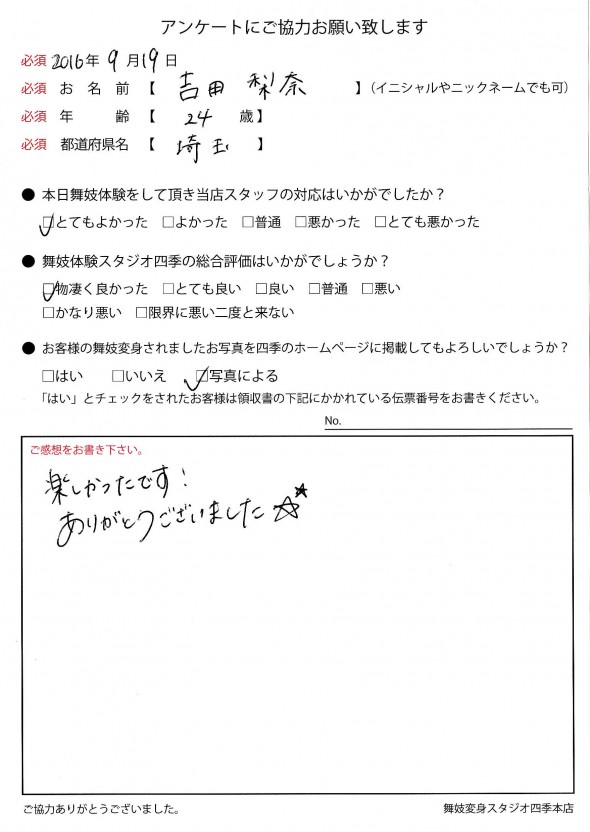 アンケートにご協力お願い致します
必須 2016年 9月19日
必須 お名前【 吉田 梨奈 】（イニシャルやニックネームでも可）
必須 年齢【 24 歳】
必須 都道府県名【 埼玉 】
● 本日舞妓体験をして頂き当店スタッフの対応はいかがでしたか？
☑とてもよかった □よかった □普通 □悪かった □とても悪かった
● 舞妓体験スタジオ四季の総合評価はいかがでしょうか？
☑物凄く良かった □とても良い □良い □普通 □悪い
□かなり悪い □限界に悪い二度と来ない
● お客様の舞妓変身されましたお写真を四季のホームページに掲載してもよろしいでしょうか？
□はい □いいえ ☑写真による
「はい」とチェックをされたお客様は領収書の下記にかかれている伝票番号をお書きください。
No.
ご感想をお書き下さい。
楽しかったです！
ありがとうございました☆★
ご協力ありがとうございました。
舞妓変身スタジオ四季本店